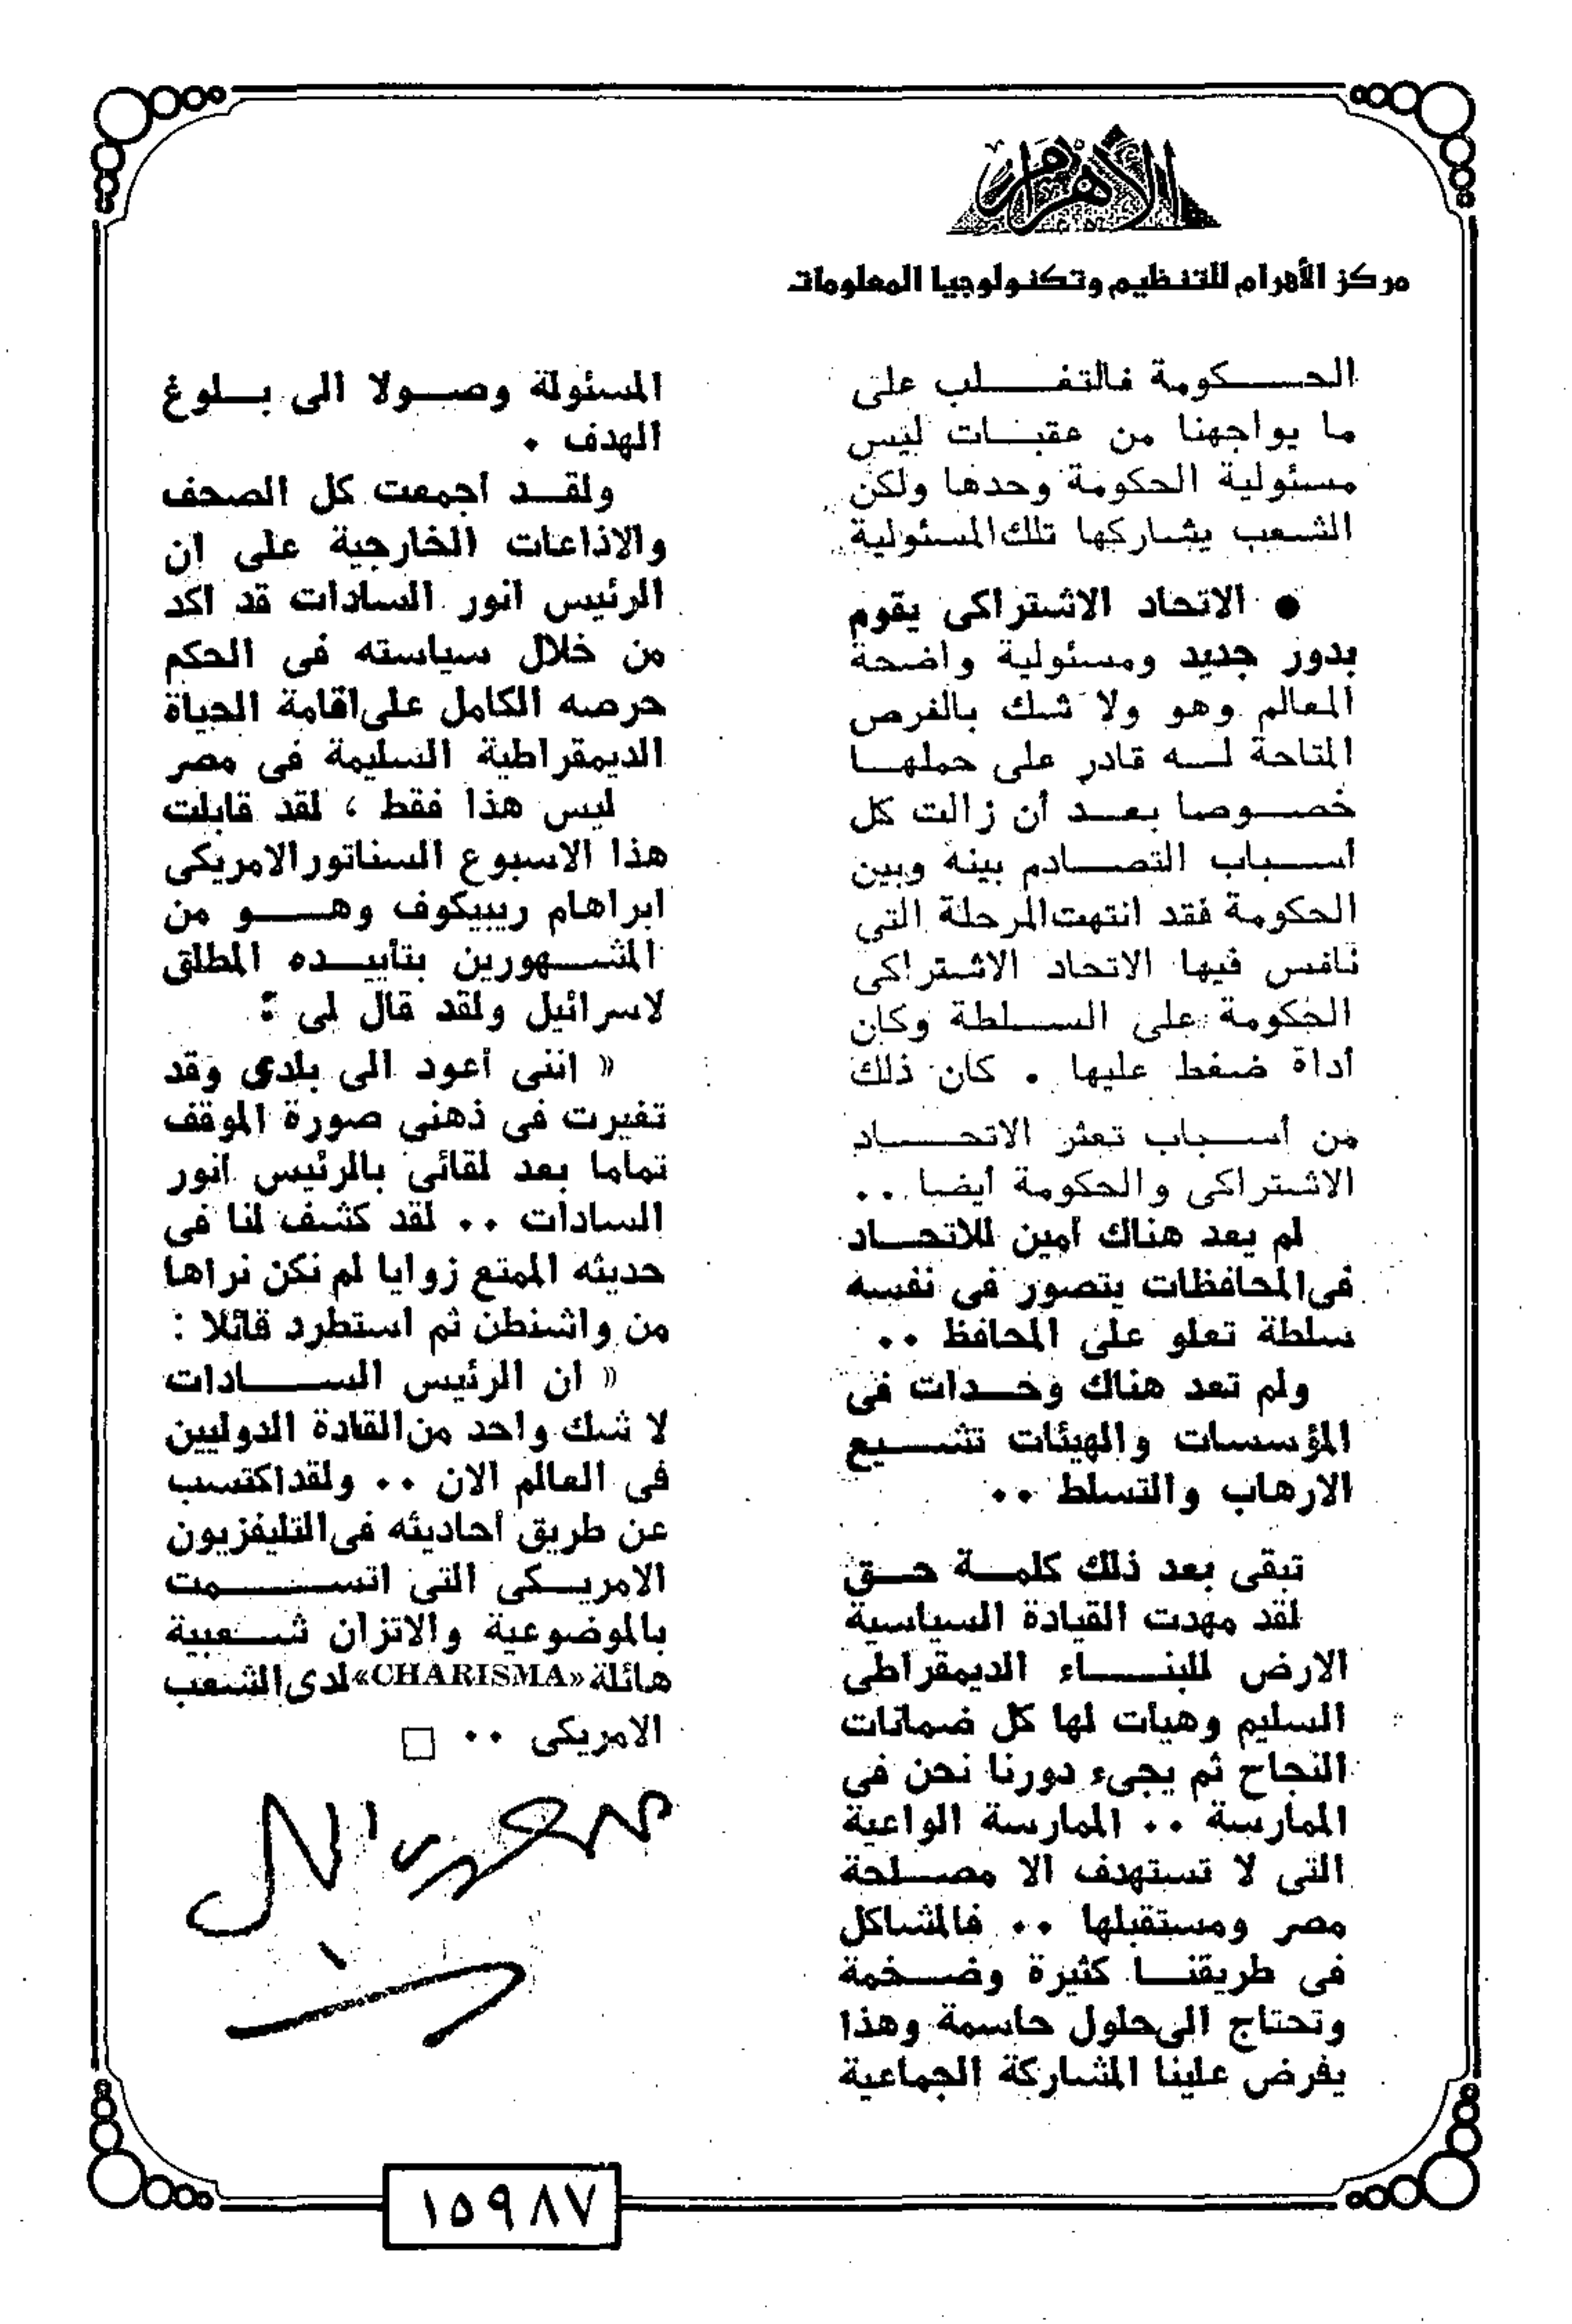 الأهرام
مركز الأهرام للتنظيم وتكنولوجيا المعلومات
الحكومة فالتغلب على
ما يواجهنا من عقبات ليس
مسئولية الحكومة وحدها ولكن
الشعب يشاركها تلك المسئولية
● الاتحاد الاشتراكى يقوم
بدور جديد ومسئولية واضحة
المعالم وهو ولا شك بالفرص
المتاحة له قادر على حملها
خصوصا بعد أن زالت كل
أسباب التصادم بينه وبين
الحكومة فقد انتهت المرحلة التى
نافس فيها الاتحاد الاشتراكى
الحكومة على السلطة وكان
أداة ضغط عليها . كان ذلك
من أسباب تعثر الاتحاد
الاشتراكى والحكومة أيضا ..
لم يعد هناك أمين للاتحاد
فى المحافظات يتصور فى نفسه
سلطة تعلو على المحافظ ..
ولم تعد هناك وحدات فى
المؤسسات والهيئات تشيع
الارهاب والتسلط ..
تبقى بعد ذلك كلمة حق
لقد مهدت القيادة السياسية
الارض للبناء الديمقراطى
السليم وهيأت لها كل ضمانات
النجاح ثم يجىء دورنا نحن فى
الممارسة .. الممارسة الواعية
التى لا تستهدف الا مصلحة
مصر ومستقبلها .. فالمشاكل
فى طريقنا كثيرة وضخمة
وتحتاج الى حلول حاسمة وهذا
يفرض علينا المشاركة الجماعية
المسئولة وصولا الى بلوغ
الهدف .
ولقد أجمعت كل الصحف
والاذاعات الخارجية على ان
الرئيس انور السادات قد اكد
من خلال سياسته فى الحكم
حرصه الكامل على اقامة الحياة
الديمقراطية السليمة فى مصر
ليس هذا فقط ، لقد قابلت
هذا الاسبوع السناتور الامريكى
ابراهام ريبيكوف وهو من
المشهورين بتأييده المطلق
لاسرائيل ولقد قال لى :
« اننى أعود الى بلدى وقد
تغيرت فى ذهنى صورة الموقف
تماما بعد لقائى بالرئيس انور
السادات .. لقد كشف لنا فى
حديثه الممتع زوايا لم نكن نراها
من واشنطن ثم استطرد قائلا :
« ان الرئيس السادات
لا شك واحد من القادة الدوليين
فى العالم الان .. ولقد اكتسب
عن طريق أحاديثه فى التليفزيون
الامريكى التى اتسمت
بالموضوعية والاتزان شعبية
هائلة «CHARISMA» لدى الشعب
الامريكى .. □
١٥٩٨٧